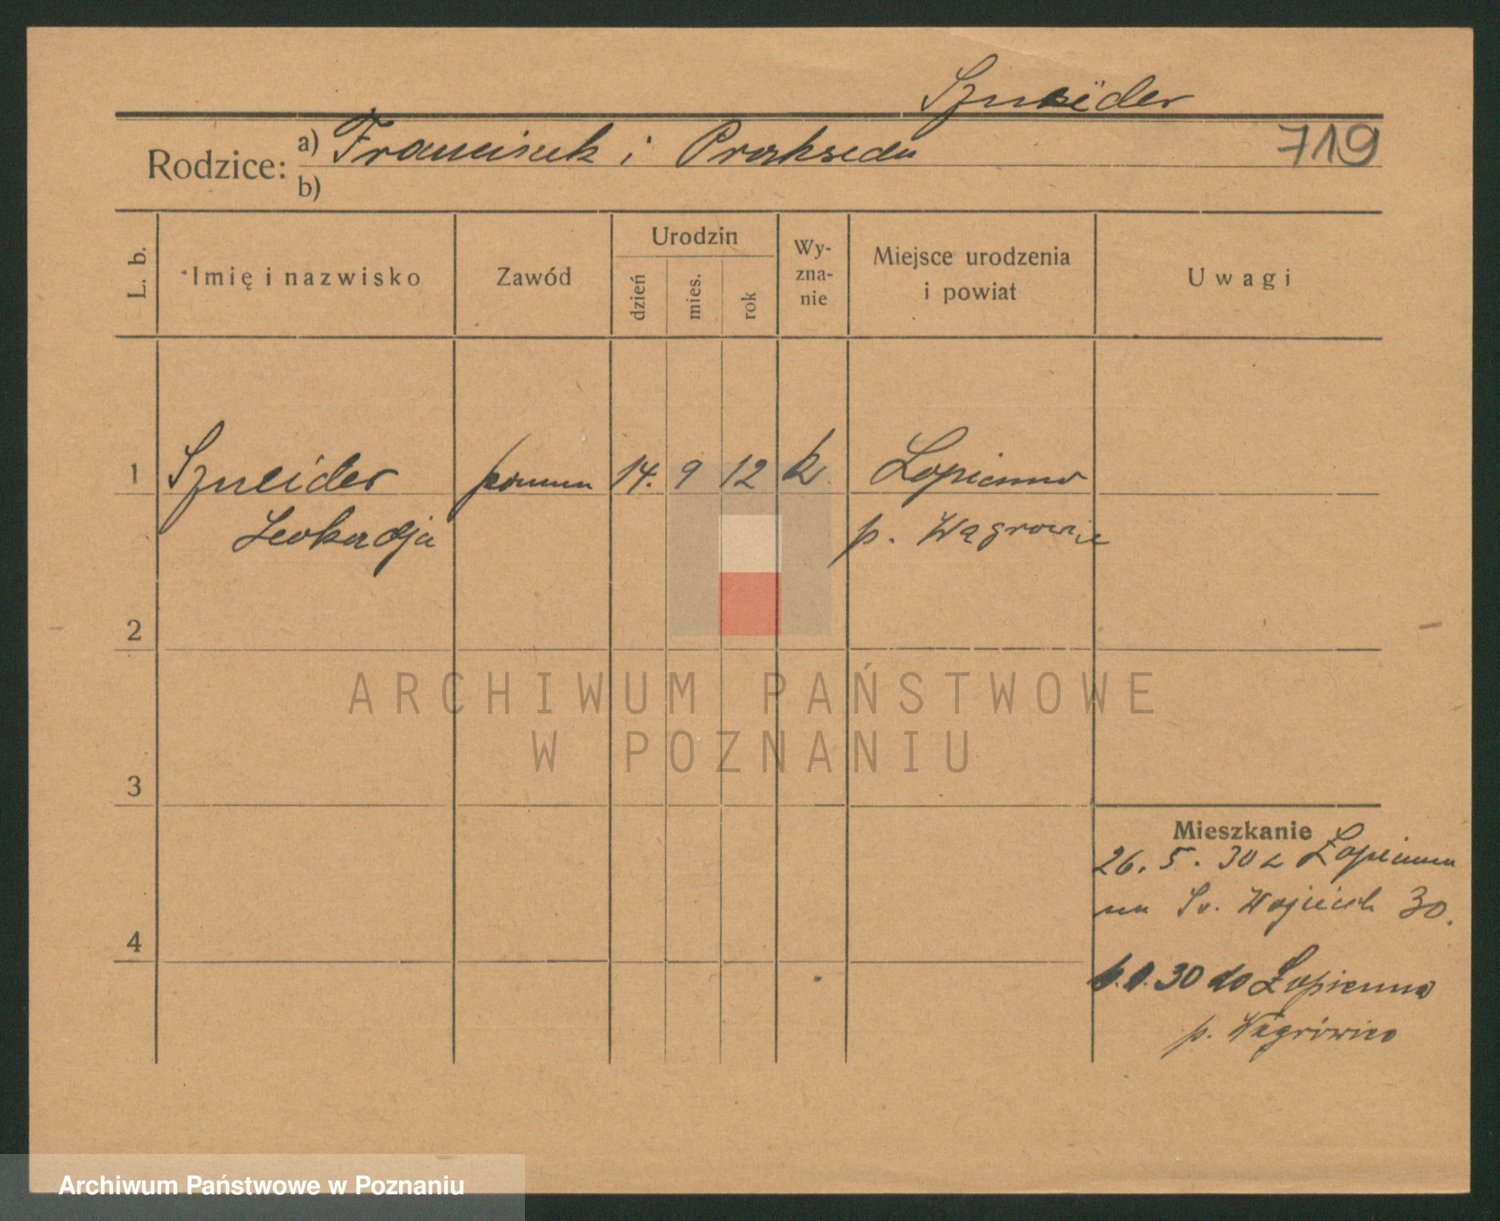 Szneider
Rodzice: a) Franciszek i Prakseda 719
b)
L. b. Imię i nazwisko Zawód Urodzin dzień mies. rok Wy-zna-nie Miejsce urodzenia i powiat Uwagi
1 Szneider 14. 9 12 k. Łopienno
Leokadja p. Wągrowiec
2
ARCHIWUM PAŃSTWOWE
W POZNANIU
3
Mieszkanie
26. 5. 30 z Łopienna
na Św. Wojciech 30.
4
30 do Łopienna
p. Wągrówiec
Archiwum Państwowe w Poznaniu